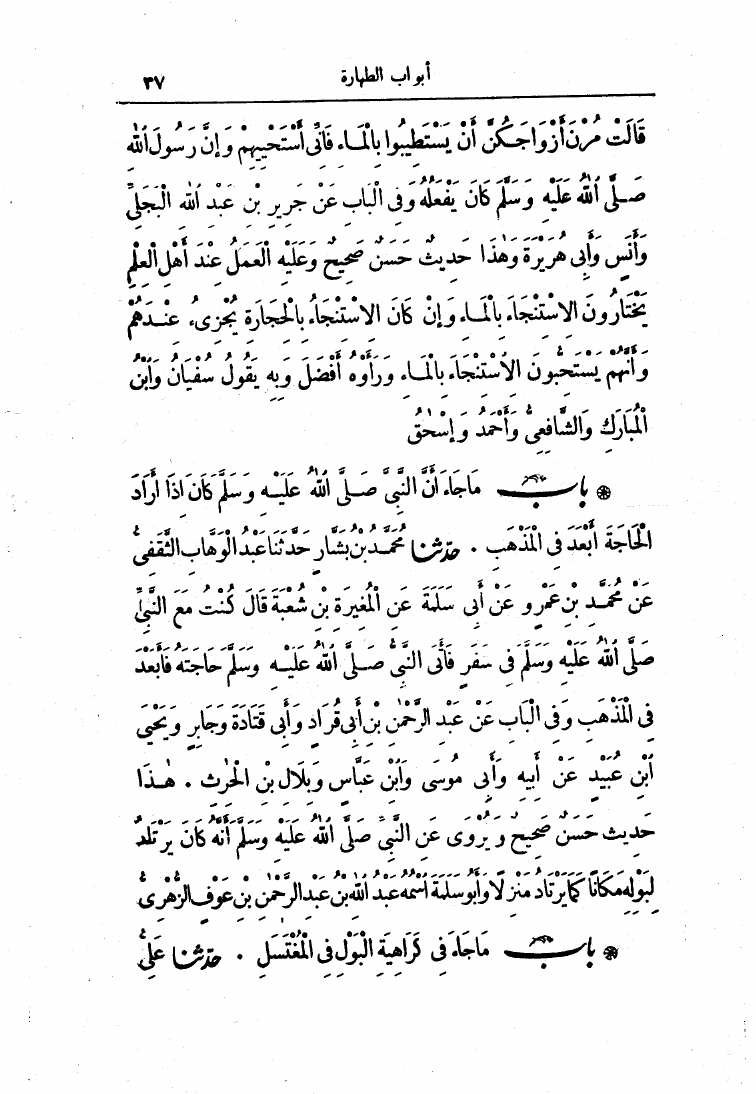 أبواب الطهارة ٣٧
قَالَتْ مُرْنَ أَزْوَاجَكُنَّ أَنْ يَسْتَطِيبُوا بِالْمَاءِ فَانِّى أَسْتَحْيِيهِمْ وَإِنَّ رَسُولَ اللهِ
صَلَّى اللهُ عَلَيْهِ وَسَلَّمَ كَانَ يَفْعَلُهُ وَفِى الْبَابِ عَنْ جَرِيرِ بْنِ عَبْدِ اللهِ الْبَجَلِىِّ
وَأَنَسٍ وَأَبِى هُرَيْرَةَ وَهٰذَا حَدِيثٌ حَسَنٌ صَحِيحٌ وَعَلَيْهِ الْعَمَلُ عِنْدَ أَهْلِ الْعِلْمِ
يَخْتَارُونَ الاِسْتِنْجَاءَ بِالْمَاءِ وَإِنْ كَانَ الاِسْتِنْجَاءُ بِالْحِجَارَةِ يُجْزِىءُ عِنْدَهُمْ
وَأَنَّهُمْ يَسْتَحِبُّونَ الاِسْتِنْجَاءَ بِالْمَاءِ وَرَأَوْهُ أَفْضَلَ وَبِهِ يَقُولُ سُفْيَانُ وَابْنُ
الْمُبَارَكِ وَالشَّافِعِىُّ وَأَحْمَدُ وَإِسْحٰقُ
بَاب مَاجَاءَ أَنَّ النَّبِىَّ صَلَّى اللهُ عَلَيْهِ وَسَلَّمَ كَانَ إِذَا أَرَادَ
الْحَاجَةَ أَبْعَدَ فِى الْمَذْهَبِ . حدثنا مُحَمَّدُ بْنُ بَشَّارٍ حَدَّثَنَا عَبْدُ الْوَهَّابِ الثَّقَفِىُّ
عَنْ مُحَمَّدِ بْنِ عَمْرٍو عَنْ أَبِى سَلَمَةَ عَنِ الْمُغِيرَةِ بْنِ شُعْبَةَ قَالَ كُنْتُ مَعَ النَّبِىِّ
صَلَّى اللهُ عَلَيْهِ وَسَلَّمَ فِى سَفَرٍ فَأَتَى النَّبِىُّ صَلَّى اللهُ عَلَيْهِ وَسَلَّمَ حَاجَتَهُ فَأَبْعَدَ
فِى الْمَذْهَبِ وَفِى الْبَابِ عَنْ عَبْدِ الرَّحْمٰنِ بْنِ أَبِى قُرَادٍ وَأَبِى قَتَادَةَ وَجَابِرٍ وَيَحْيَى
ابْنِ عُبَيْدٍ عَنْ أَبِيهِ وَأَبِى مُوسَى وَابْنِ عَبَّاسٍ وَبِلَالِ بْنِ الْحٰرِثِ . هٰذَا
حَدِيثٌ حَسَنٌ صَحِيحٌ وَيُرْوَى عَنِ النَّبِىِّ صَلَّى اللهُ عَلَيْهِ وَسَلَّمَ أَنَّهُ كَانَ يَرْتَادُ
لِبَوْلِهِ مَكَانًا كَمَا يَرْتَادُ مَنْزِلًا وَأَبُو سَلَمَةَ اسْمُهُ عَبْدُ اللهِ بْنُ عَبْدِ الرَّحْمٰنِ بْنِ عَوْفٍ الزُّهْرِىُّ
بَاب مَاجَاءَ فِى كَرَاهِيَةِ الْبَوْلِ فِى الْمُغْتَسَلِ . حدثنا عَلِىُّ